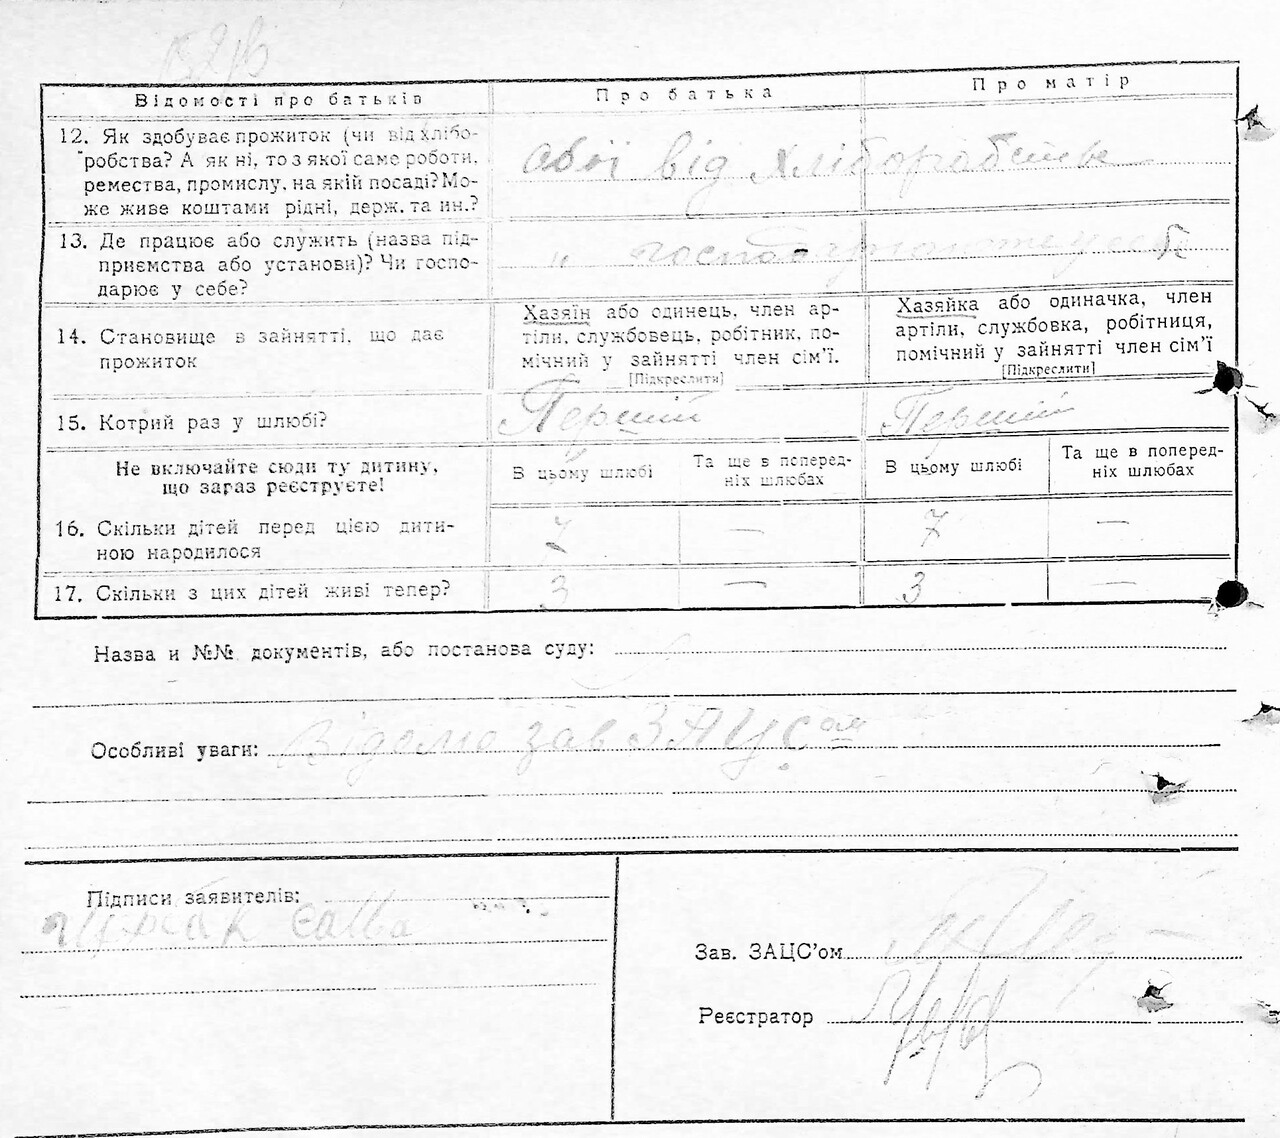 Відомості про батьків
Про батька
Про матір
12. Як здобуває прожиток (чи від хлібо-
робства? А як ні, то з якої саме роботи,
ремества, промислу, на якій посаді? Мо-
же живе коштами рідні, держ. та ин.?
обоє від хліборобства
13. Де працює або служить (назва під-
приємства або установи)? Чи госпо-
дарює у себе?
"
14. Становище в зайнятті, що дає
прожиток
Хазяїн або одинець, член ар-
тіли, службовець, робітник, по-
мічний у зайнятті член сім'ї.
[Підкреслити]
Хазяйка або одиначка, член
артіли, службовка, робітниця,
помічний у зайнятті член сім'ї
[Підкреслити]
15. Котрий раз у шлюбі?
Перший
Перший
Не включайте сюди ту дитину,
що зараз реєструєте!
В цьому шлюбі
Та ще в поперед-
ніх шлюбах
В цьому шлюбі
Та ще в поперед-
ніх шлюбах
16. Скільки дітей перед цією дити-
ною народилося
7
—
7
—
17. Скільки з цих дітей живі тепер?
3
—
3
—
Назва и №№ документів, або постанова суду:
Особливі уваги: Відомо зав ЗАЦС ом
Підписи заявителів:
Савва
Зав. ЗАЦС'ом
Реєстратор